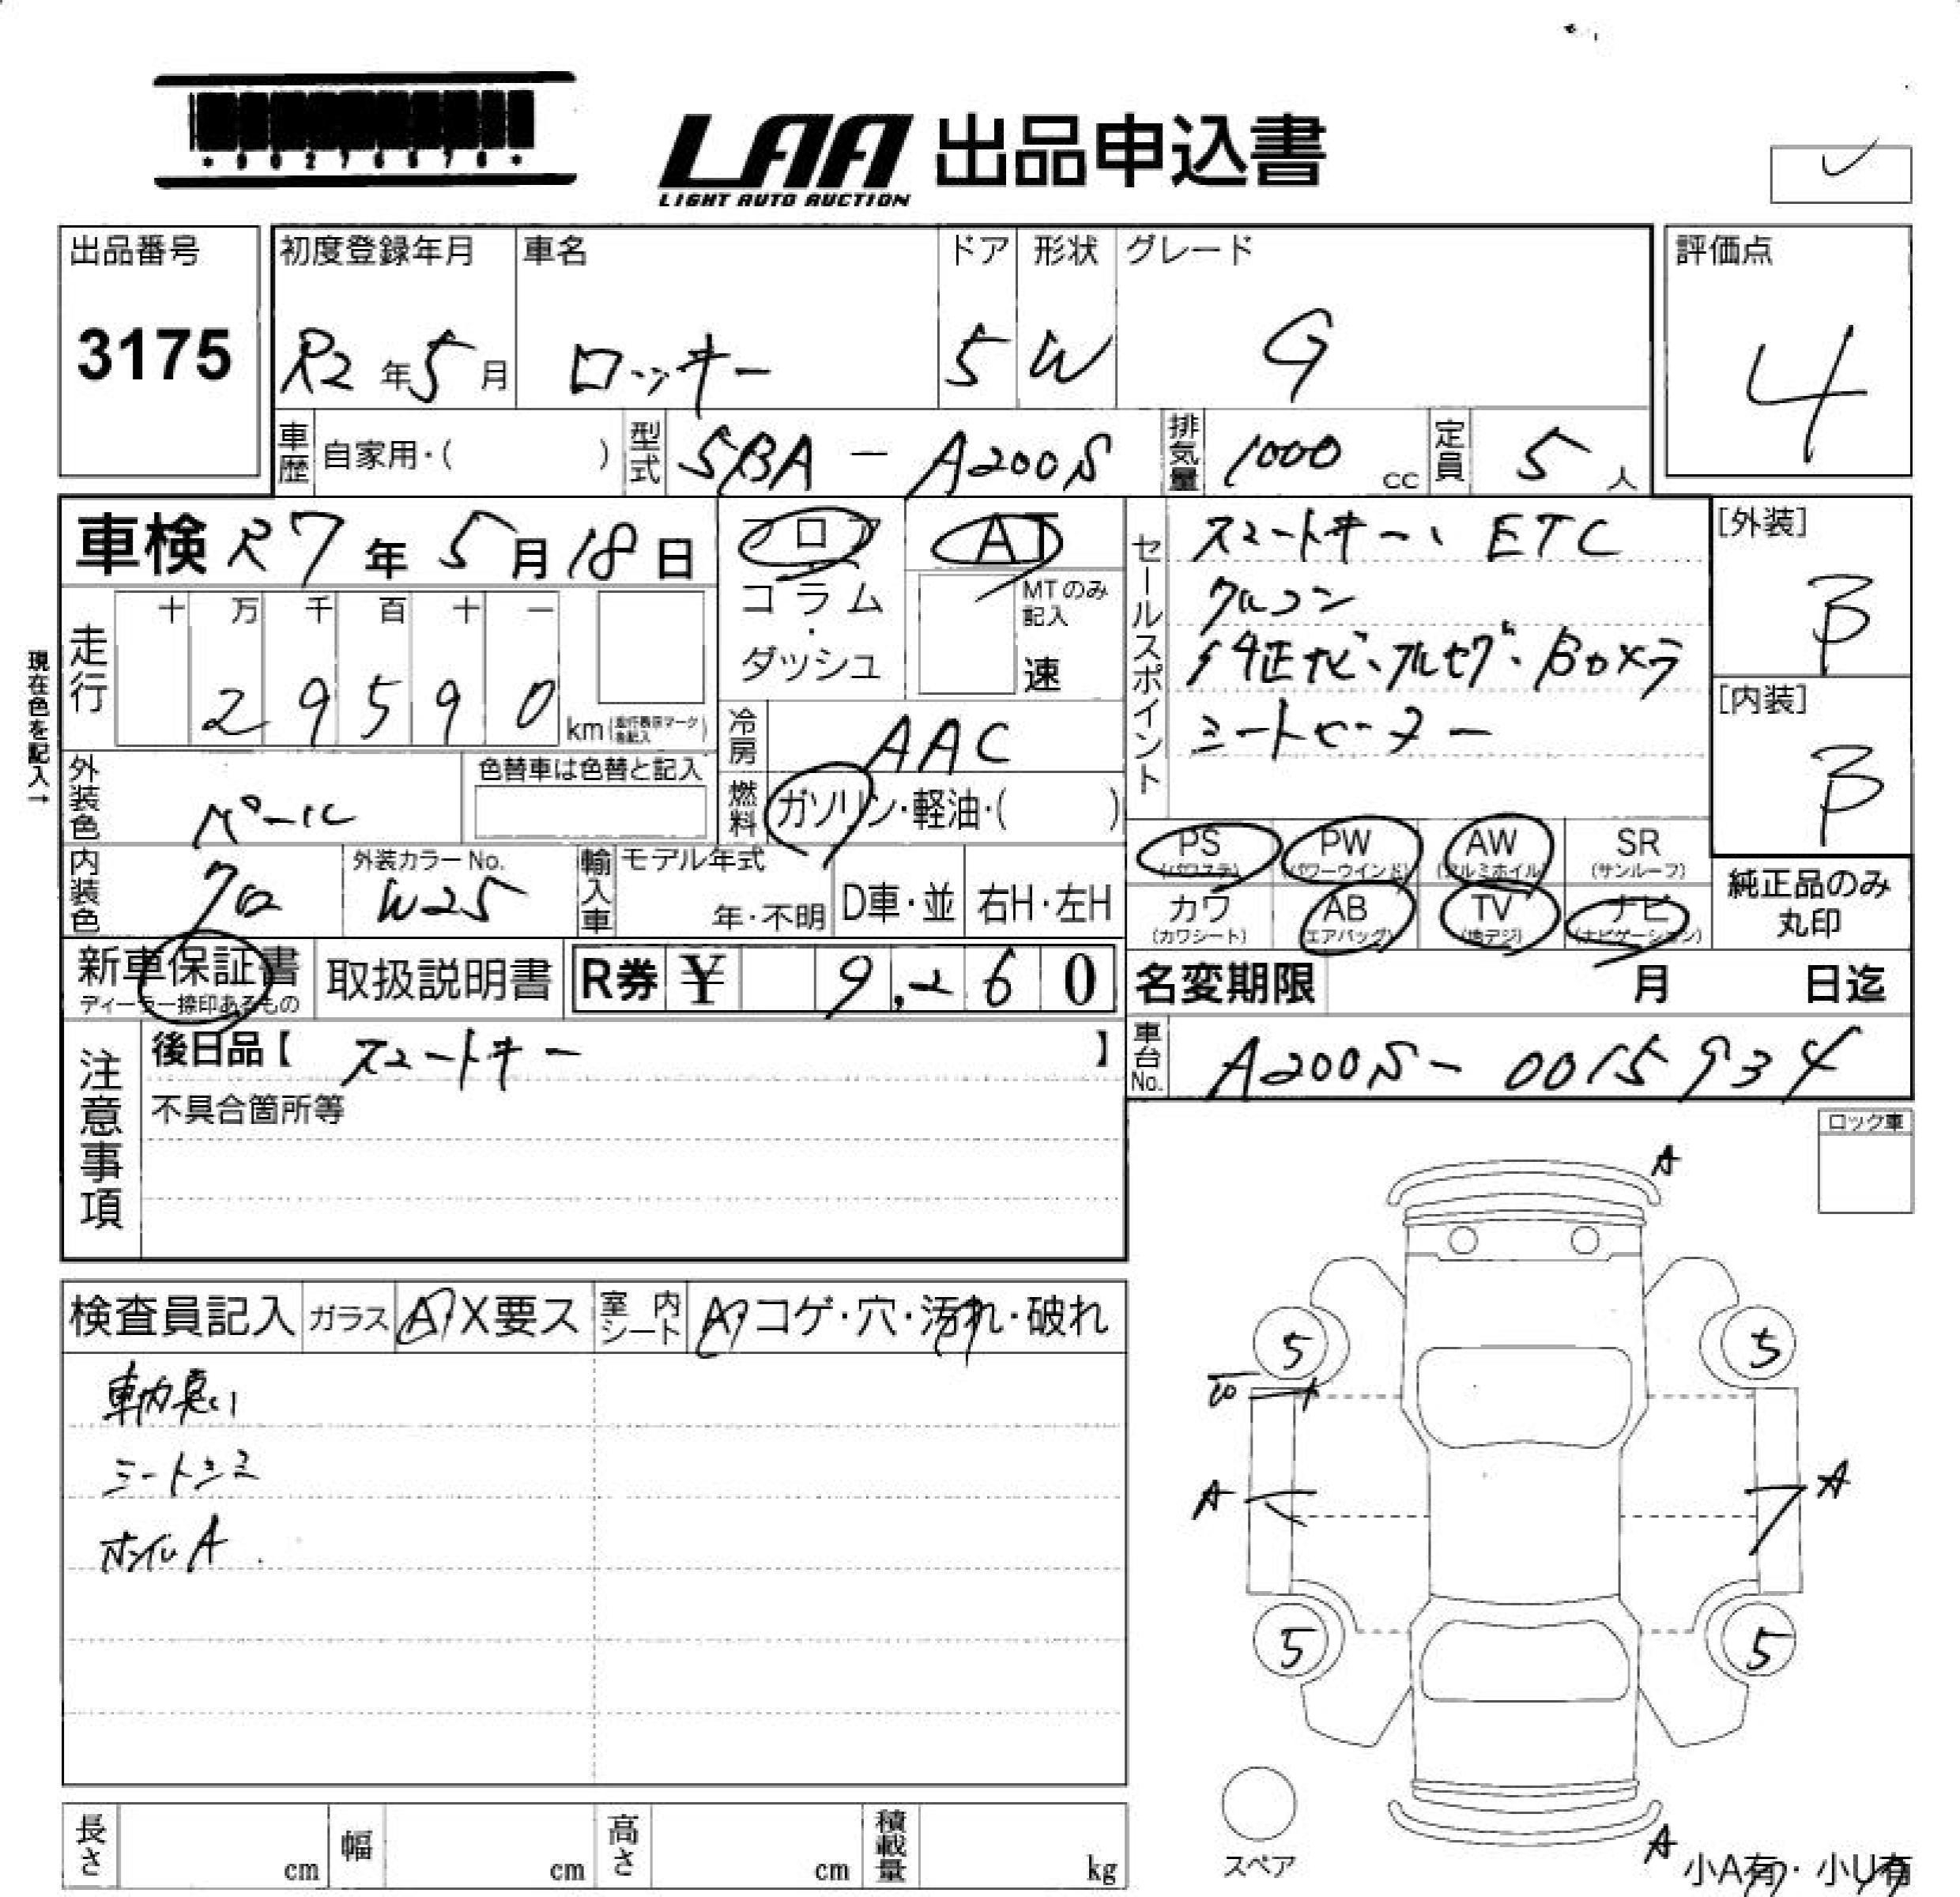 LAA 出品申込書
LIGHT AUTO AUCTION
出品番号 初度登録年月 車名 ドア 形状 グレード 評価点
3175 R2年5月 ロッキー 5 W G 4
車歴 自家用・( ) 型式 5BA - A200S 排気量 1000 cc 定員 5 人
車検 R7年5月18日 フロア AT
コラム・ダッシュ MTのみ記入 速
セールスポイント スマートキー、ETC
クルコン
純正ナビ・フルセグ・Bカメラ
シートヒーター
[外装] B
[内装] B
現在色を記入→
走行 十 万 千 百 十 一
2 9 5 9 0 km
冷房 AAC
外装色 パール 色替車は色替と記入
燃料 ガソリン・軽油・( )
PS (パワステ) PW (パワーウインド) AW (アルミホイル) SR (サンルーフ)
カワ (カワシート) AB (エアバッグ) TV (地デジ) ナビ (ナビゲーション)
純正品のみ丸印
内装色 クロ 外装カラーNo. W25 輸入車 モデル年式 年・不明 D車・並 右H・左H
新車保証書 ディーラー捺印あるもの 取扱説明書 R券 ¥ 9,260
名変期限 月 日迄
車台No. A200S - 0015934
注意事項 後日品【 スマートキー 】
不具合箇所等
ロック車
検査員記入 ガラス A・X要ス 室内シート A・コゲ・穴・汚れ・破れ
車内臭い
シートシミ
ホイルA
A
5 5
A A
5 5
スペア
A
小A有・小U有
長さ cm 幅 cm 高さ cm 積載量 kg